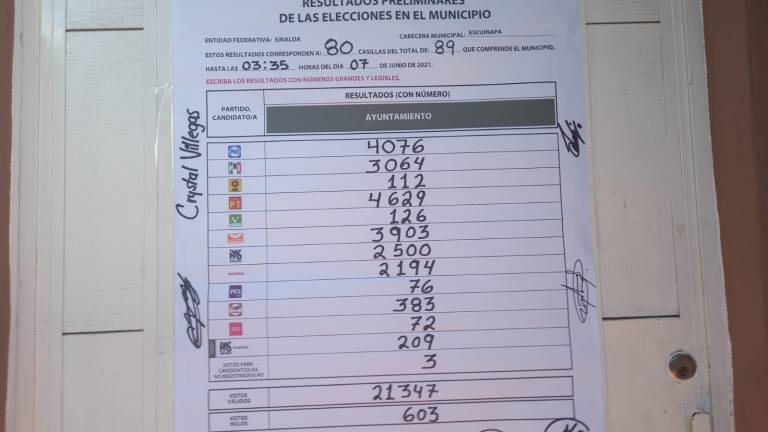 RESULTADOS PRELIMINARES
DE LAS ELECCIONES EN EL MUNICIPIO
ENTIDAD FEDERATIVA: SINALOA CABECERA MUNICIPAL: ESCUINAPA
ESTOS RESULTADOS CORRESPONDEN A: 80 CASILLAS DEL TOTAL DE: 89 QUE COMPRENDE EL MUNICIPIO,
HASTA LAS 03:35 HORAS DEL DÍA 07 DE JUNIO DE 2021.
ESCRIBA LOS RESULTADOS CON NÚMEROS GRANDES Y LEGIBLES.
PARTIDO, CANDIDATO/A
RESULTADOS (CON NÚMERO)
AYUNTAMIENTO
PAN 4076
PRI 3064
112
PT 4629
126
3903
PAS 2500
morena 2194
PES 76
383
72
PAS morena 209
VOTOS PARA
CANDIDATOS/AS
NO REGISTRADOS/AS 3
VOTOS
VÁLIDOS 21347
VOTOS
NULOS 603
Crystal Villegas